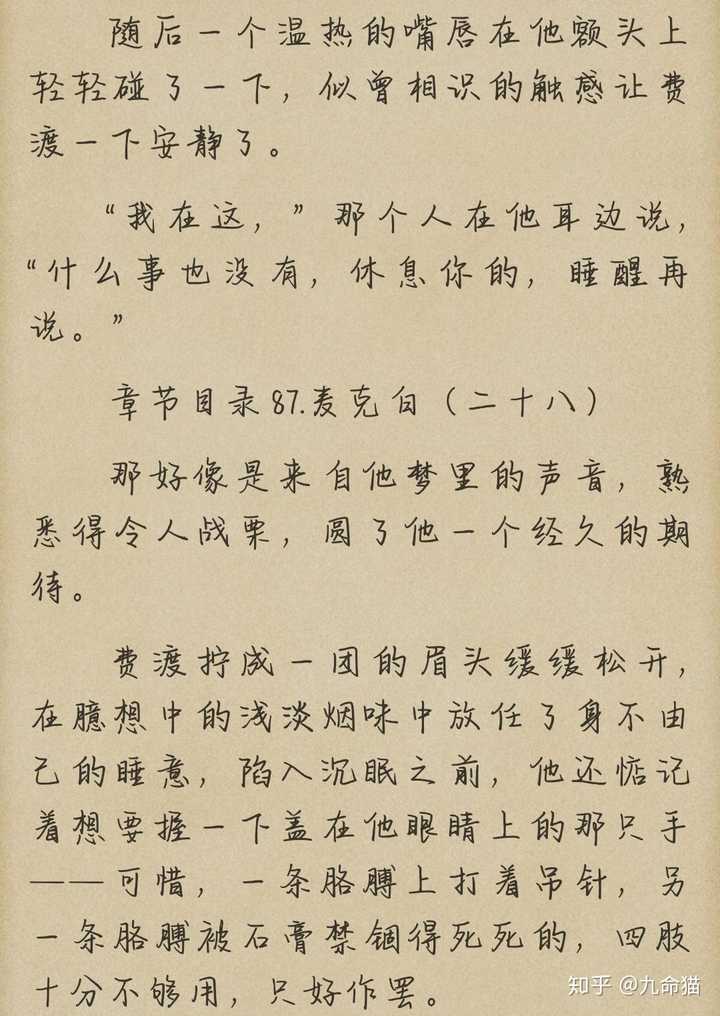 随后一个温热的嘴唇在他额头上
轻轻碰了一下，似曾相识的触感让费
渡一下安静了。
“我在这，”那个人在他耳边说，
“什么事也没有，休息你的，睡醒再
说。”
章节目录87.麦克白（二十八）
那好像是来自他梦里的声音，熟
悉得令人战栗，圆了他一个经久的期
待。
费渡拧成一团的眉头缓缓松开，
在臆想中的浅淡烟味中放任了身不由
己的睡意，陷入沉眠之前，他还惦记
着想要握一下盖在他眼睛上的那只手
——可惜，一条胳膊上打着吊针，另
一条胳膊被石膏禁锢得死死的，四肢
十分不够用，只好作罢。
知乎 @九命猫